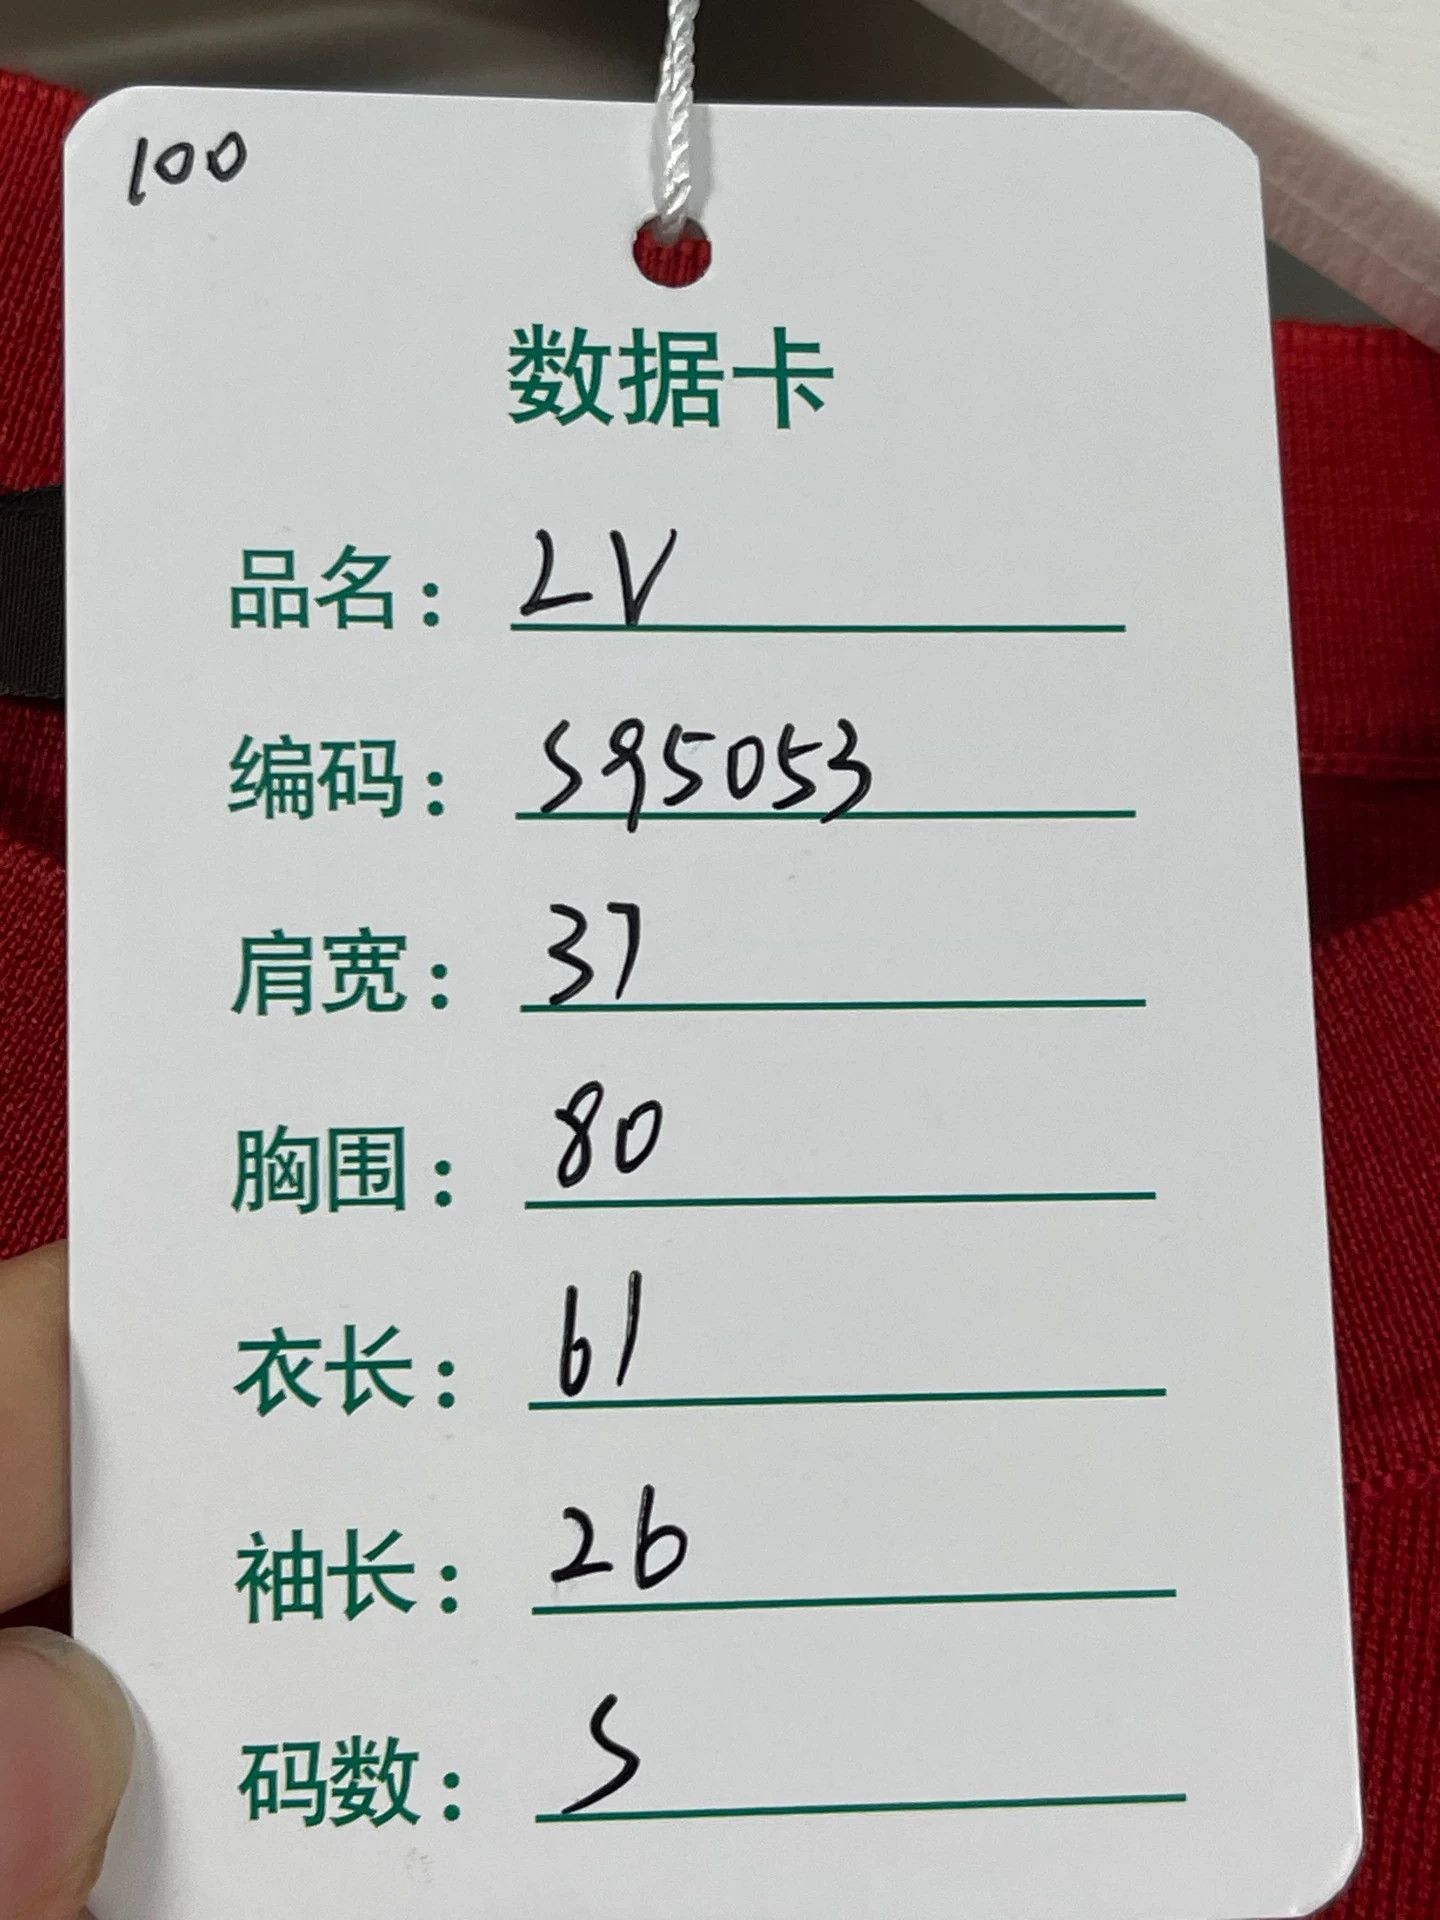 100
数据卡
品名：LV
编码：S95053
肩宽：37
胸围：80
衣长：61
袖长：26
码数：S